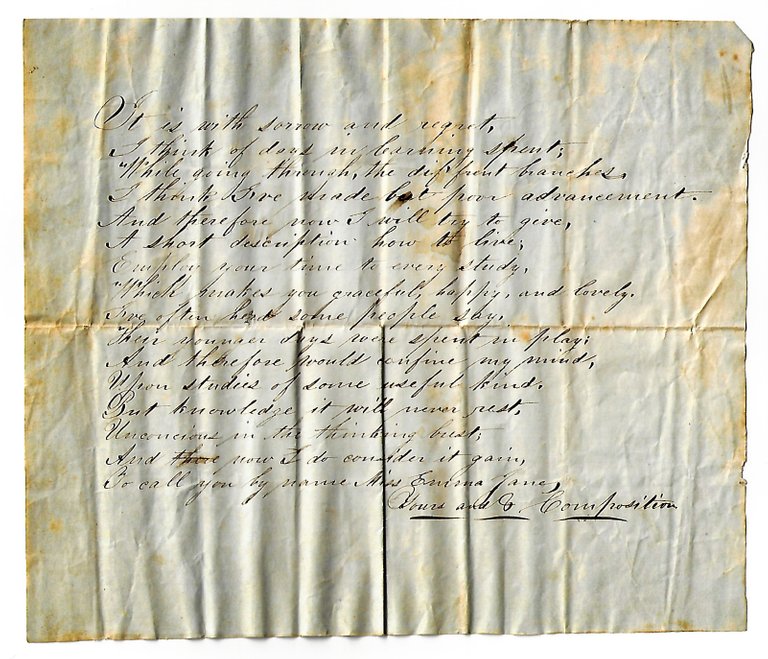 It is with sorrow and regret,
I think of days in learning spent;
While going through, the diffrent branches,
I think I've made but poor advancement.
And therefore now I will try to give,
A short description how to live;
Employ your time to every study,
Which makes you graceful, happy, and lovely.
I've often herd some people say,
Their younger days were spent in play;
And therefore would confine my mind,
Upon studies of some useful kind.
But knowledge it will never rest,
Unconcious in the thinking brest;
And there now I do consider it gain,
To call you by name Miss Emma Jane,
Yours and & Composition